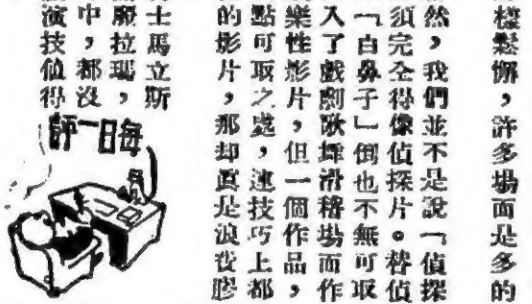 樣鬆懈,許多場面是多的
然,我們並不是說「偵探
須完全得像偵探片。替偵
「白鼻子」倒也不無可取
入了戲劇歌舞滑稽場面作
樂性影片,但一個作品,
點可取之處,連技巧上都
的影片,那却真是浪費膠
士馬立斯
拉瑪,
中,都沒
演技值得
晦一師